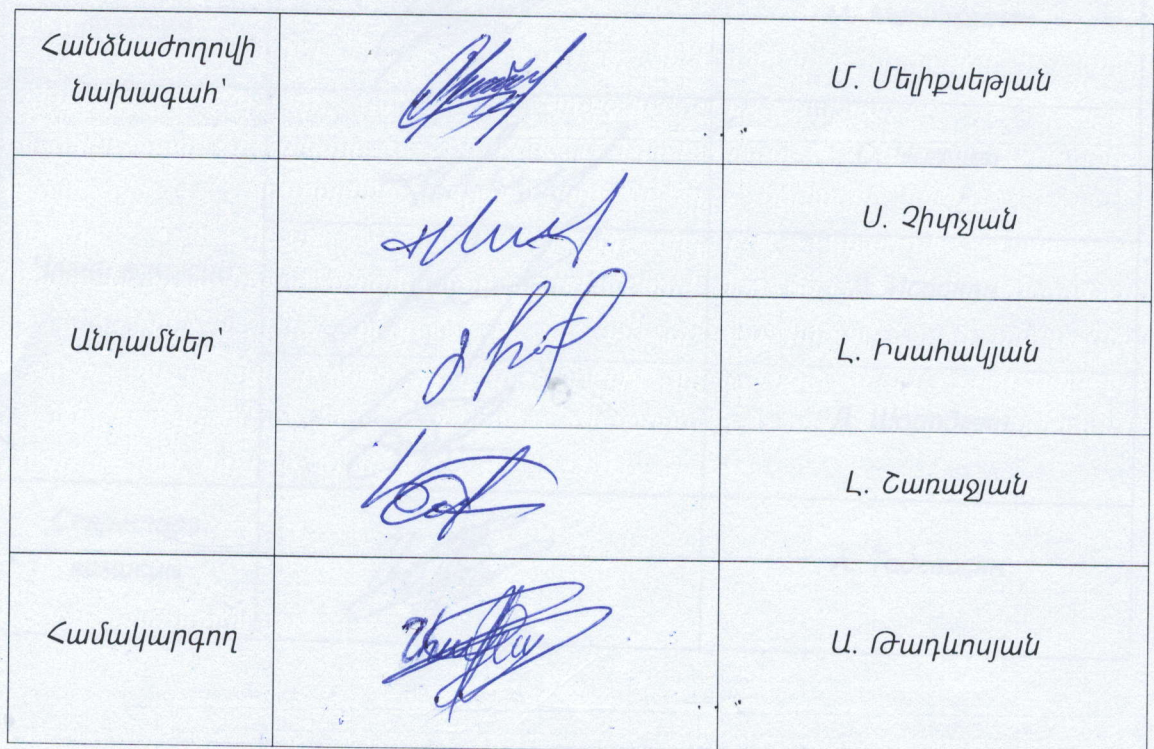 Հանձնաժողովի
նախագահ՝
Մ. Մելիքսեթյան
Անդամներ՝
Ս. Չիտչյան
Լ. Իսահակյան
Լ. Շառաջյան
Համակարգող
Ա. Թադևոսյան